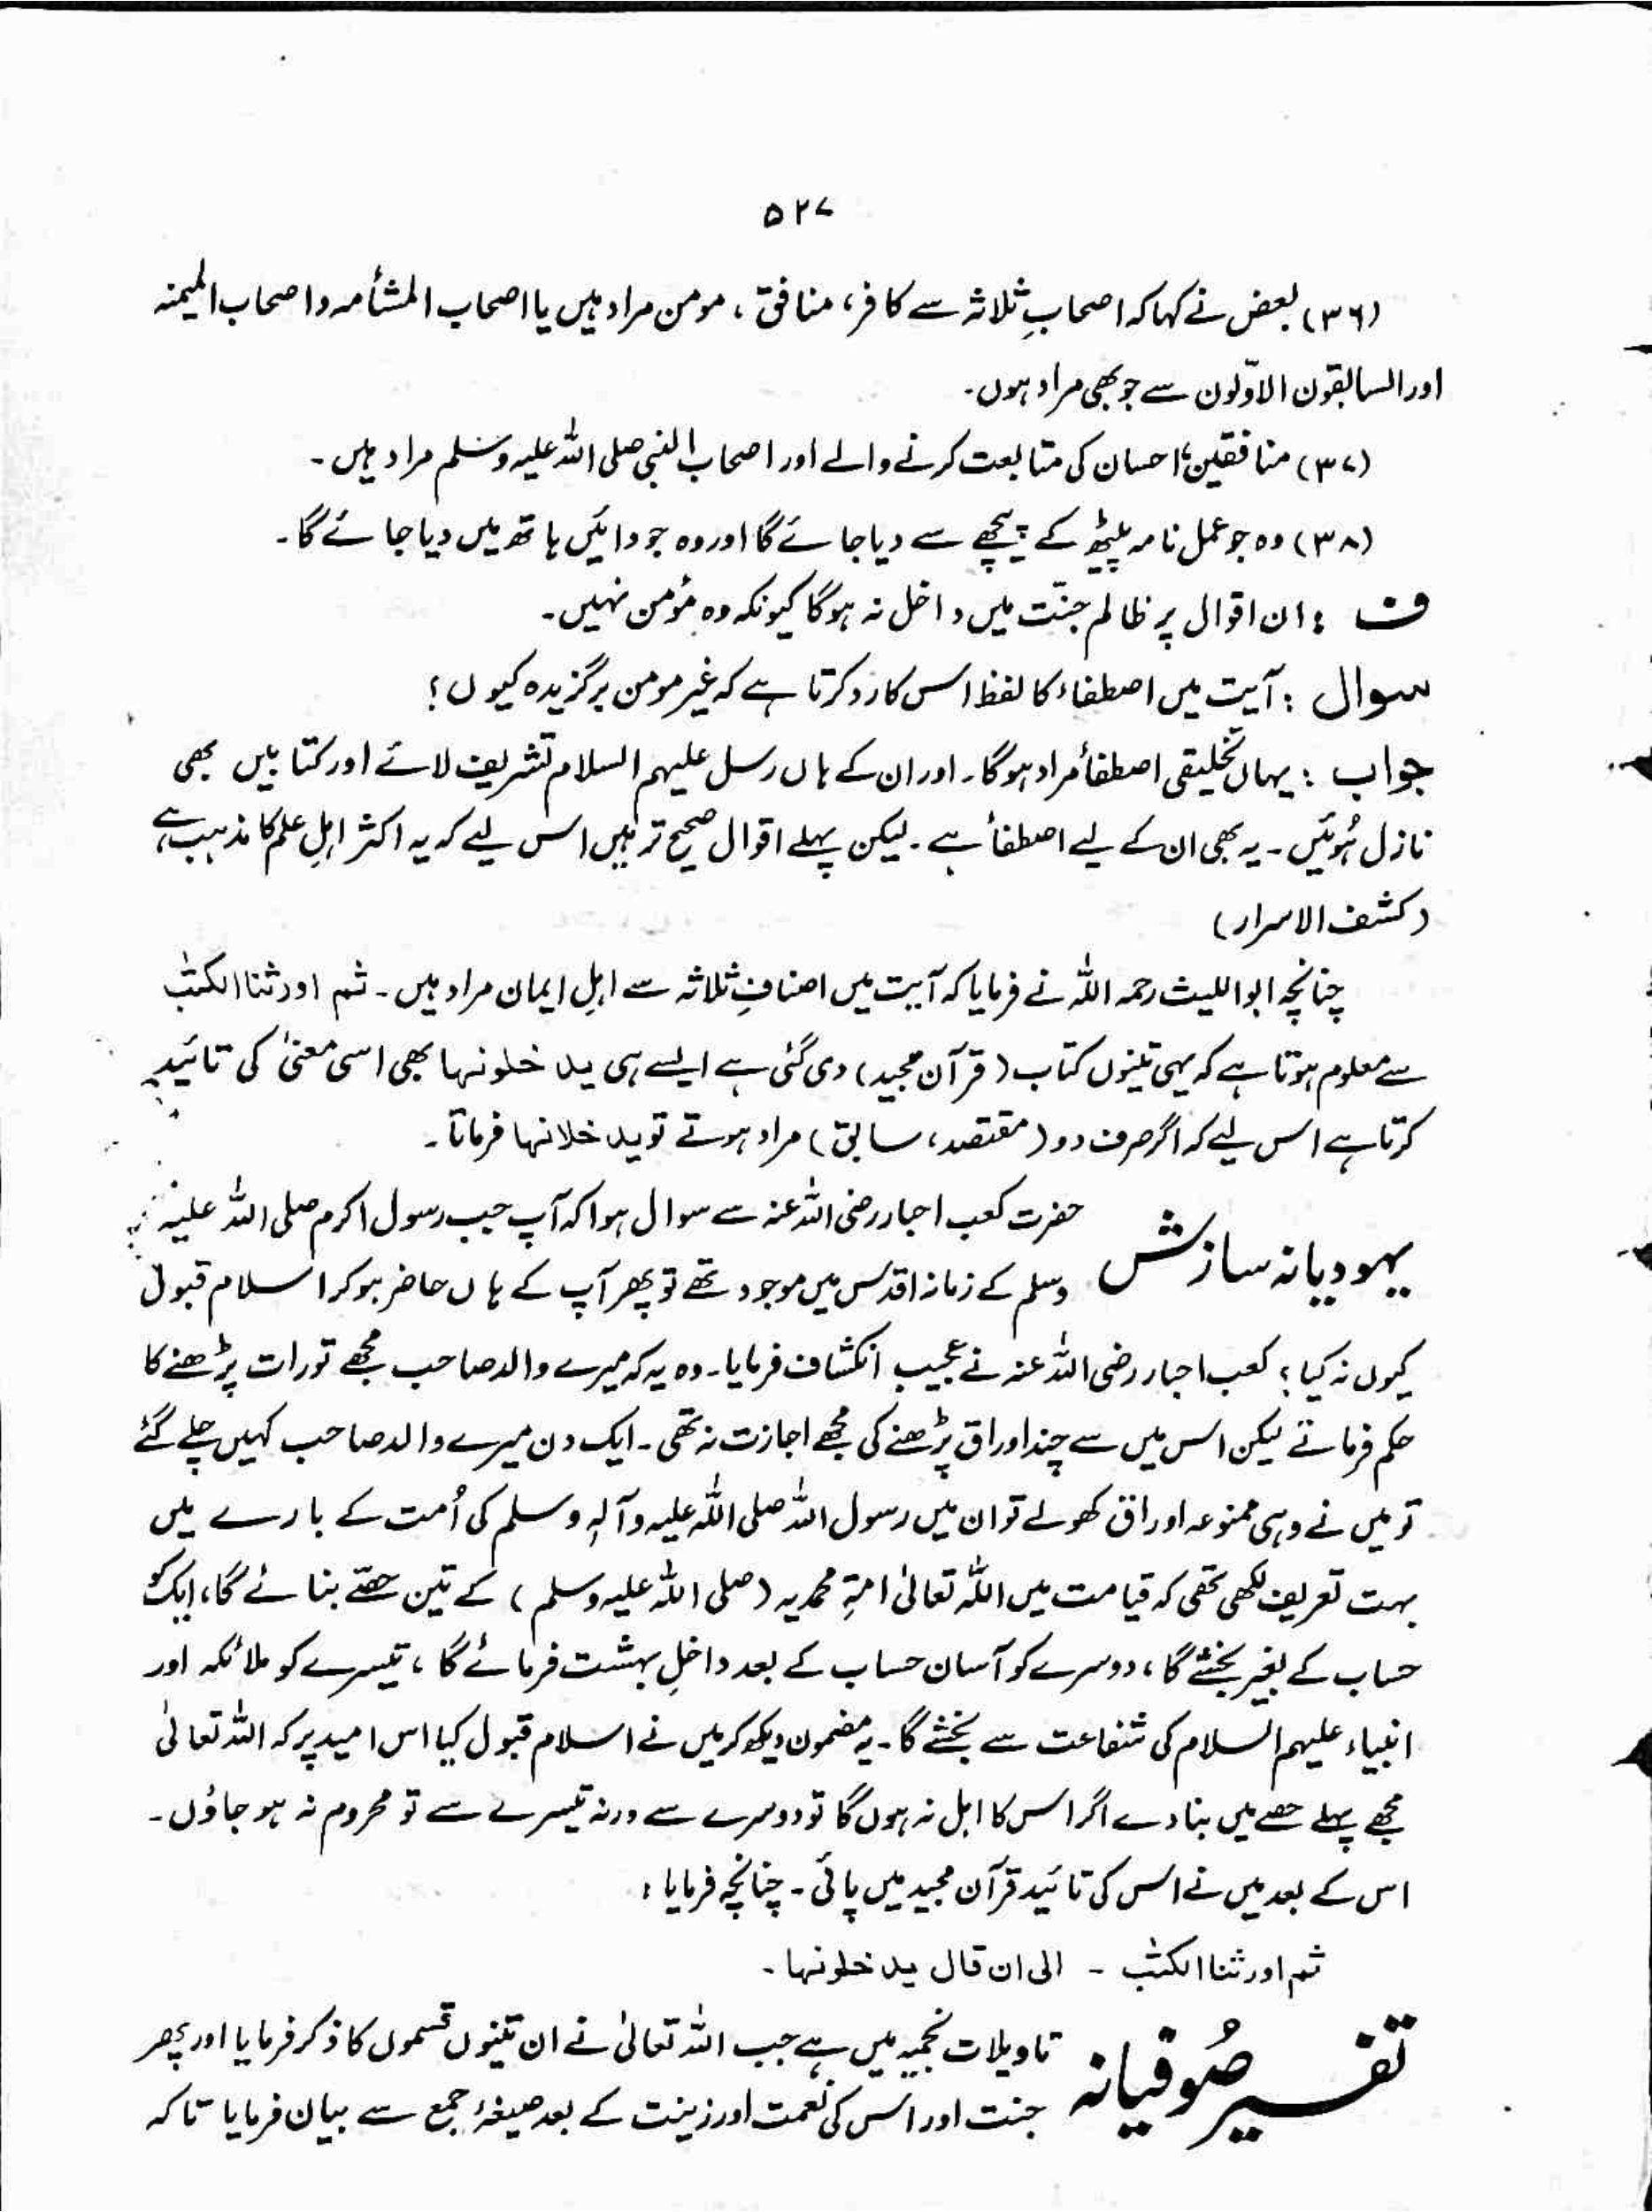 ۵۲۷
(۳۶) بعض نے کہا کہ اصحابِ ثلاثہ سے کافر، منافق، مومن مراد ہیں یا اصحاب المشأمہ و اصحاب المیمنہ
اور السابقون الاوّلون سے جو بھی مراد ہوں۔
(۳۷) منافقین، احسان کی متابعت کرنے والے اور اصحاب النبی صلی اللہ علیہ وسلم مراد ہیں۔
(۳۸) وہ جو عمل نامہ پیٹھ کے پیچھے سے دیا جائے گا اور وہ جو دائیں ہاتھ میں دیا جائے گا۔
ف : ان اقوال پر ظالم جنّت میں داخل نہ ہوگا کیونکہ وہ مؤمن نہیں۔
سوال : آیت میں اصطفاء کا لفظ اس کا رد کرتا ہے کہ غیر مومن برگزیدہ کیوں؟
جواب : یہاں تخلیقی اصطفأ مراد ہوگا۔ اور ان کے ہاں رسل علیہم السلام تشریف لائے اور کتابیں بھی
نازل ہُوئیں۔ یہ بھی ان کے لیے اصطفأ ہے۔ لیکن پہلے اقوال صحیح تر ہیں اس لیے کہ یہ اکثر اہلِ علم کا مذہب ہے،
(کشف الاسرار)
چنانچہ ابو اللیث رحمہ اللہ نے فرمایا کہ آیت میں اصنافِ ثلاثہ سے اہلِ ایمان مراد ہیں۔ ثم اورثنا الکتٰب
سے معلوم ہوتا ہے کہ یہی تینوں کتاب (قرآن مجید) دی گئی ہے ایسے ہی یدخلونہا بھی اسی معنیٰ کی تائید
کرتا ہے اس لیے کہ اگر صرف دو (مقتصد، سابق) مراد ہوتے تو یدخلانہا فرماتا۔
یہودیانہ سازش حضرت کعب احبار رضی اللہ عنہ سے سوال ہوا کہ آپ جب رسول اکرم صلی اللہ علیہ
وسلم کے زمانہ اقدس میں موجود تھے تو پھر آپ کے ہاں حاضر ہو کر اسلام قبول
کیوں نہ کیا؟ کعب احبار رضی اللہ عنہ نے عجیب انکشاف فرمایا۔ وہ یہ کہ میرے والد صاحب مجھے تورات پڑھنے کا
حکم فرماتے لیکن اس میں سے چند اوراق پڑھنے کی مجھے اجازت نہ تھی۔ ایک دن میرے والد صاحب کہیں چلے گئے
تو میں نے وہی ممنوعہ اوراق کھولے تو ان میں رسول اللہ صلی اللہ علیہ وآلہٖ وسلم کی اُمت کے بارے میں
بہت تعریف لکھی تھی کہ قیامت میں اللہ تعالیٰ امۃِ محمدیہ (صلی اللہ علیہ وسلم) کے تین حصّے بنائے گا، ایک کو
حساب کے بغیر بخشے گا، دوسرے کو آسان حساب کے بعد داخلِ بہشت فرمائے گا، تیسرے کو ملائکہ اور
انبیاء علیہم السلام کی شفاعت سے بخشے گا۔ یہ مضمون دیکھ کر میں نے اسلام قبول کیا اس امید پر کہ اللہ تعالیٰ
مجھے پہلے حصے میں بنا دے اگر اس کا اہل نہ ہوں گا تو دوسرے سے ورنہ تیسرے سے تو محروم نہ ہو جاؤں۔
اس کے بعد میں نے اس کی تائید قرآن مجید میں پائی۔ چنانچہ فرمایا :
ثم اورثنا الکتٰب ۔ الی ان قال یدخلونہا۔
تفسیر صُوفیانہ تاویلات نجمیہ میں ہے جب اللہ تعالیٰ نے ان تینوں قسموں کا ذکر فرمایا اور پھر
جنت اور اس کی نعمت اور زینت کے بعد صیغۂ جمع سے بیان فرمایا تاکہ